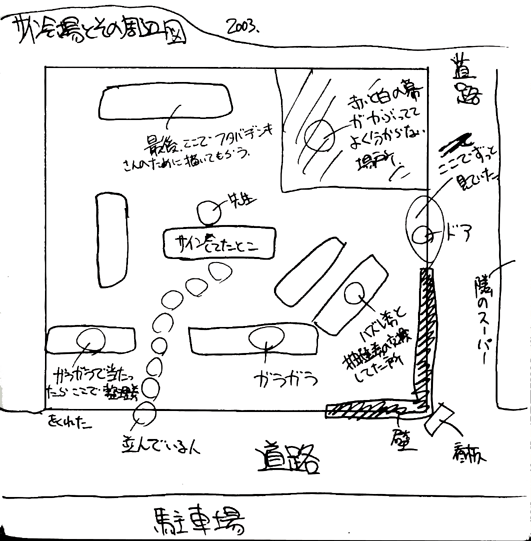 サイン会場とその周辺図
2003.
道路
赤と白の幕
がかぶってて
よく分からない
場所.
最後、ここでフタバデンキ
さんのために描いてもらう.
ここでずっと
見ていた.
先生
サインしてたとこ
ドア
隣のスーパー
ハズレ券と
抽選券の交換
してた所
ガラガラ
ガラガラで当たっ
たらここで整理券
をくれた
並んでいる人
壁
看板
道路
駐車場